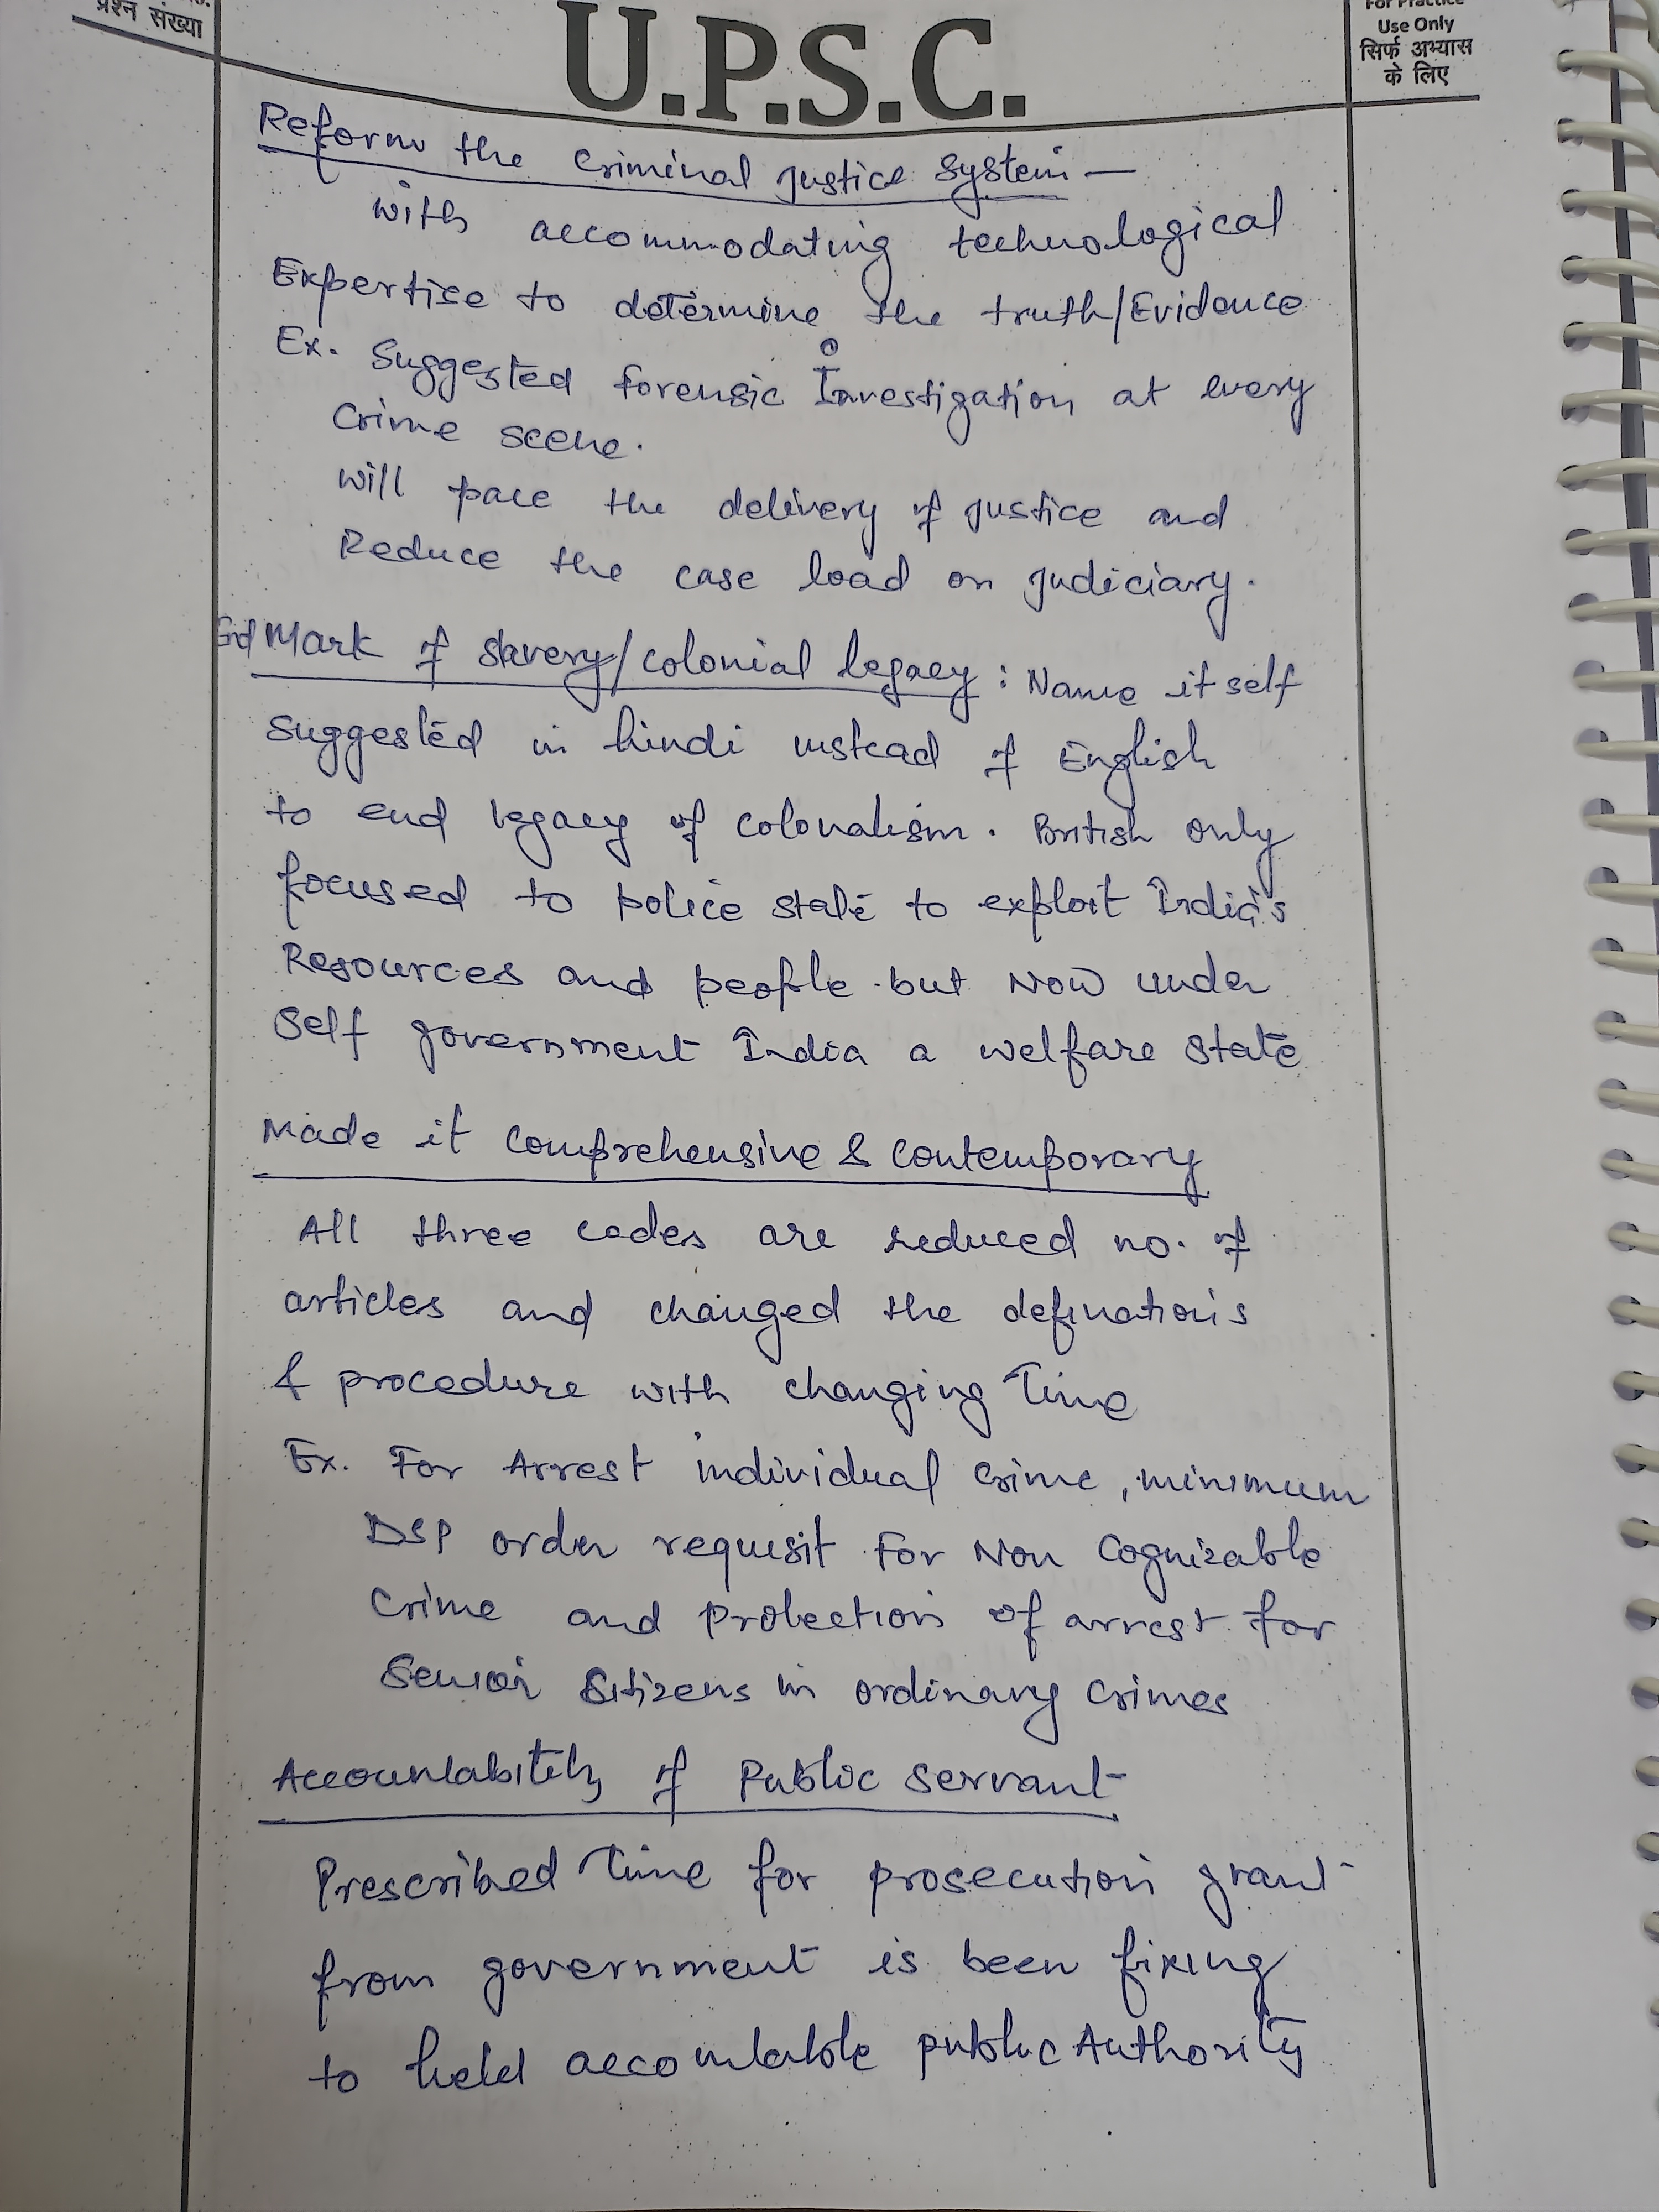 प्रश्न संख्या
U.P.S.C.
For Practice
Use Only
सिर्फ अभ्यास
के लिए
Reform the Criminal Justice System —
with accommodating technological
Expertise to determine the truth/Evidence
Ex. Suggested forensic Investigation at every
crime scene.
will pace the delivery of justice and
Reduce the case load on judiciary.
End Mark of slavery/colonial legacy : Name itself
suggested in hindi instead of English
to end legacy of colonalism. British only
focused to police state to exploit India's
Resources and people but Now under
Self government India a welfare state
Made it Comprehensive & Contemporary
All three codes are reduced no. of
articles and changed the definations
& procedure with changing Time
Ex. For Arrest individual crime, minimum
DSP order requisit for Non Cognizable
crime and protection of arrest for
Senior Sitizens in ordinary crimes
Accountability of Public servant
Prescribed Time for prosecution grant
from government is been fixing
to held accountable public Authority